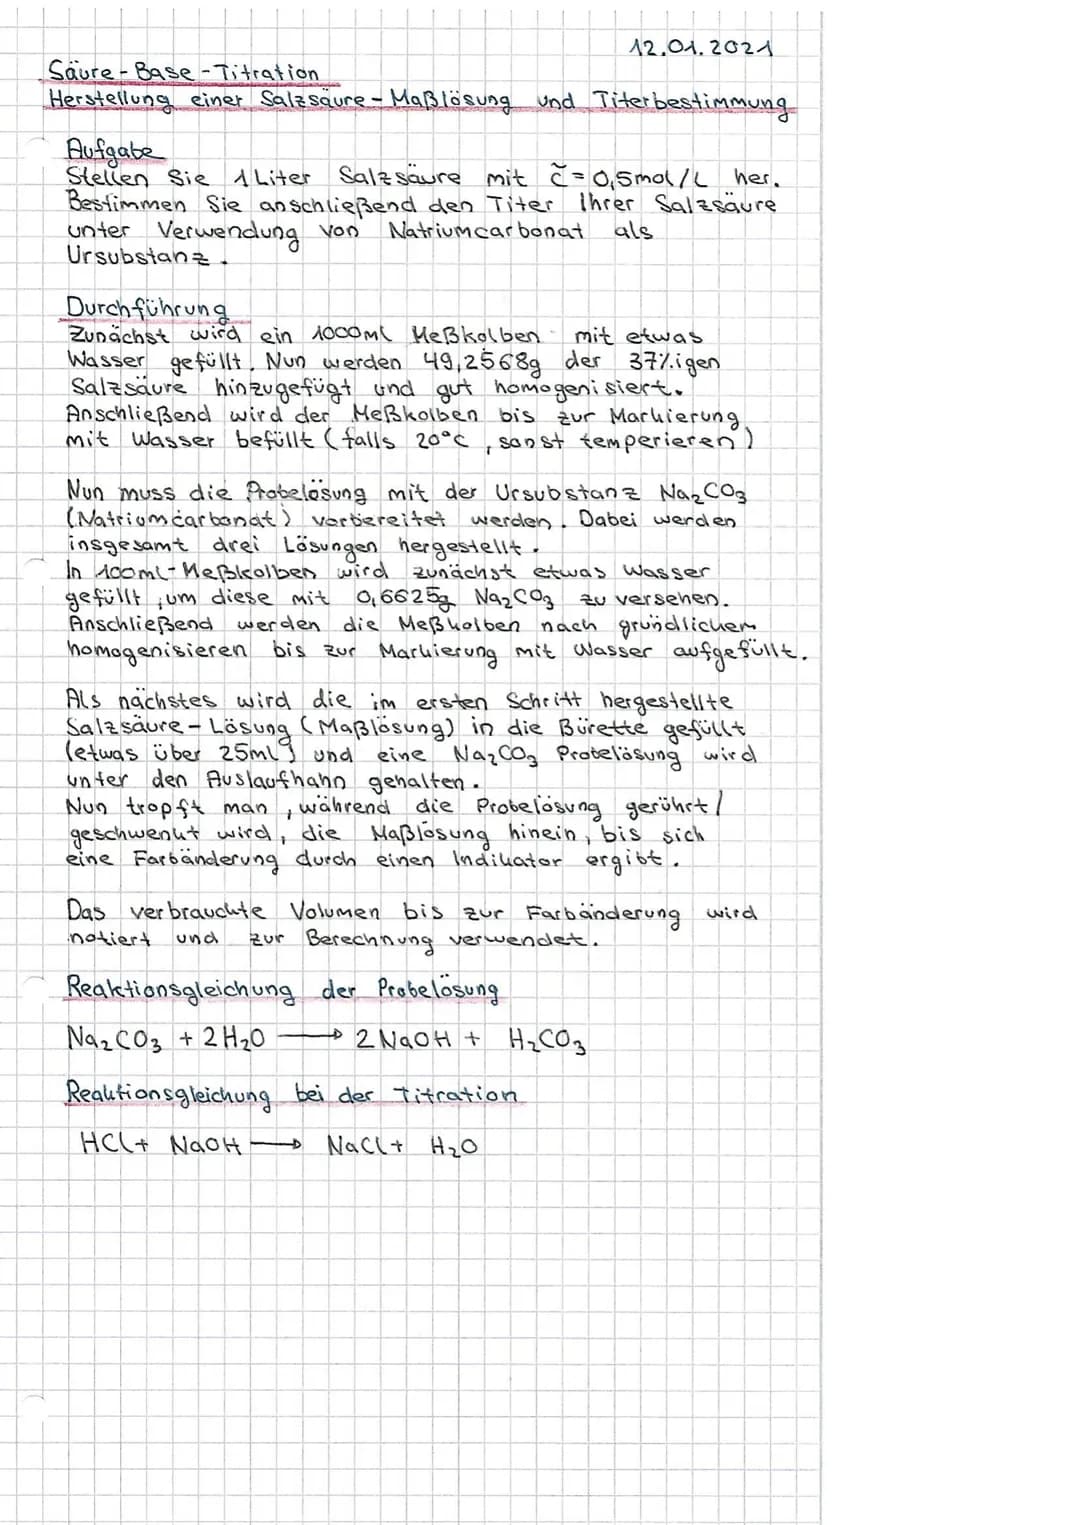 12.01.2021
Säure-Base-Titration
Herstellung einer Salzsäure-Maßlösung und Titerbestimmung
Aufgabe
Stellen Sie 1 Liter Salzsäure mit c̃=0,5mol/L her.
Bestimmen Sie anschließend den Titer Ihrer Salzsäure
unter Verwendung von Natriumcarbonat als
Ursubstanz.
Durchführung
Zunächst wird ein 1000ml Meßkolben mit etwas
Wasser gefüllt. Nun werden 49,2568g der 37%igen
Salzsäure hinzugefügt und gut homogenisiert.
Anschließend wird der Meßkolben bis zur Markierung
mit Wasser befüllt (falls 20°C, sonst temperieren)
Nun muss die Probelösung mit der Ursubstanz Na₂CO₃
(Natriumcarbonat) vorbereitet werden. Dabei werden
insgesamt drei Lösungen hergestellt.
In 100ml-Meßkolben wird zunächst etwas Wasser
gefüllt, um diese mit 0,6625g Na₂CO₃ zu versehen.
Anschließend werden die Meßkolben nach gründlichem
homogenisieren bis zur Markierung mit Wasser aufgefüllt.
Als nächstes wird die im ersten Schritt hergestellte
Salzsäure-Lösung (Maßlösung) in die Bürette gefüllt
(etwas über 25ml) und eine Na₂CO₃ Probelösung wird
unter den Auslaufhahn gehalten.
Nun tropft man, während die Probelösung gerührt/
geschwenkt wird, die Maßlösung hinein, bis sich
eine Farbänderung durch einen Indikator ergibt.
Das verbrauchte Volumen bis zur Farbänderung wird
notiert und zur Berechnung verwendet.
Reaktionsgleichung der Probelösung
Na₂CO₃ + 2H₂O ⟶ 2NaOH + H₂CO₃
Reaktionsgleichung bei der Titration
HCl + NaOH ⟶ NaCl + H₂O